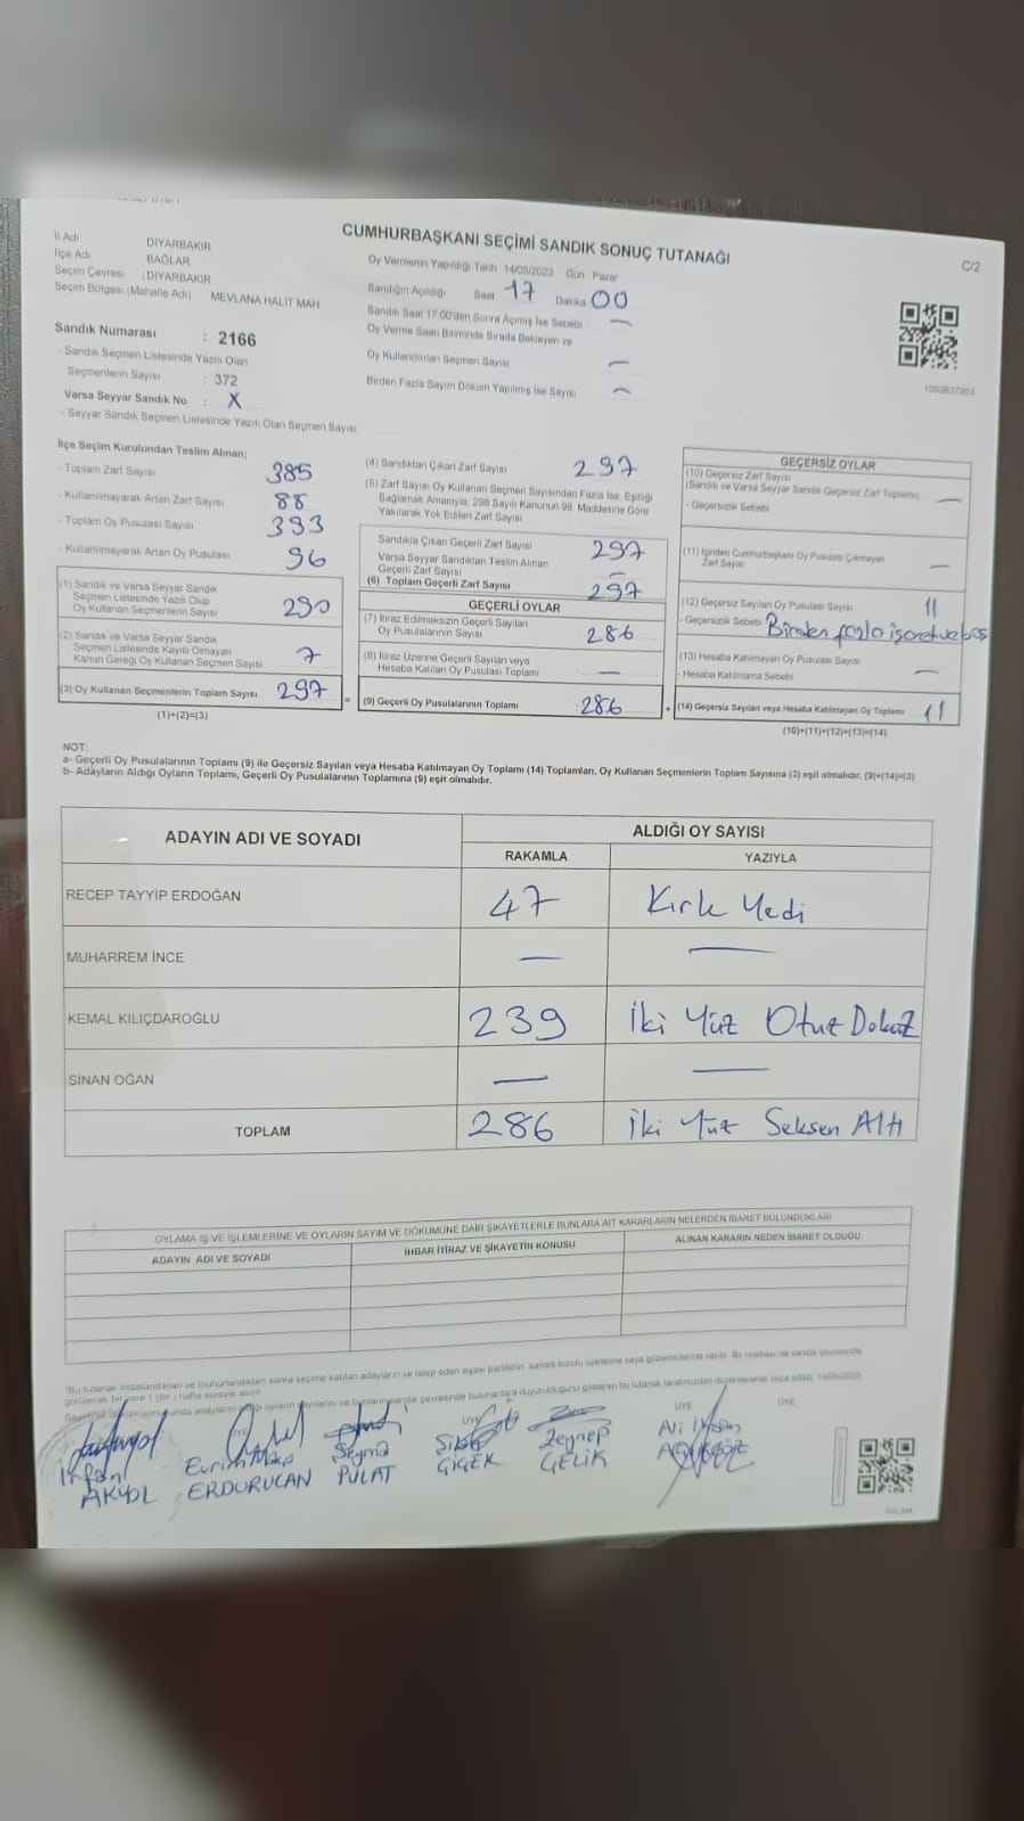 CUMHURBAŞKANI SEÇİMİ SANDIK SONUÇ TUTANAĞI
C/2
İl Adı: DİYARBAKIR
İlçe Adı: BAĞLAR
Seçim Çevresi: DİYARBAKIR
Seçim Bölgesi (Mahalle Adı) MEVLANA HALİT MAH
Sandık Numarası : 2166
- Sandık Seçmen Listesinde Yazılı Olan
Seçmenlerin Sayısı : 372
Varsa Seyyar Sandık No : X
- Seyyar Sandık Seçmen Listesinde Yazılı Olan Seçmen Sayısı
Oy Vermenin Yapıldığı Tarih 14/05/2023 Gün Pazar
Sandığın Açıldığı Saat 17 Dakika 00
Sandık Saat 17.00'den Sonra Açılmış İse Sebebi —
Oy Verme Saati Bitiminde Sırada Bekleyen ve
Oy Kullandırılan Seçmen Sayısı —
Birden Fazla Sayım Döküm Yapılmış İse Sayısı —
İlçe Seçim Kurulundan Teslim Alınan;
- Toplam Zarf Sayısı 385
- Kullanılmayarak Artan Zarf Sayısı 88
- Toplam Oy Pusulası Sayısı 393
- Kullanılmayarak Artan Oy Pusulası 96
(1) Sandık ve Varsa Seyyar Sandık
Seçmen Listesinde Yazılı Olup
Oy Kullanan Seçmenlerin Sayısı 290
(2) Sandık ve Varsa Seyyar Sandık
Seçmen Listesinde Kayıtlı Olmayan
Kanun Gereği Oy Kullanan Seçmen Sayısı 7
(3) Oy Kullanan Seçmenlerin Toplam Sayısı 297
(1)+(2)=(3)
(4) Sandıktan Çıkan Zarf Sayısı 297
(5) Zarf Sayısı Oy Kullanan Seçmen Sayısından Fazla İse, Eşitliği
Sağlamak Amacıyla, 298 Sayılı Kanunun 98. Maddesine Göre
Yakılarak Yok Edilen Zarf Sayısı
Sandıkta Çıkan Geçerli Zarf Sayısı 297
Varsa Seyyar Sandıktan Teslim Alınan
Geçerli Zarf Sayısı —
(6) Toplam Geçerli Zarf Sayısı 297
GEÇERLİ OYLAR
(7) İtiraz Edilmeksizin Geçerli Sayılan
Oy Pusulalarının Sayısı 286
(8) İtiraz Üzerine Geçerli Sayılan veya
Hesaba Katılan Oy Pusulası Toplamı —
= (9) Geçerli Oy Pusulalarının Toplamı 286
GEÇERSİZ OYLAR
(10) Geçersiz Zarf Sayısı
(Sandık ve Varsa Seyyar Sandık Geçersiz Zarf Toplamı) —
- Geçersizlik Sebebi
(11) İçinden Cumhurbaşkanı Oy Pusulası Çıkmayan
Zarf Sayısı —
(12) Geçersiz Sayılan Oy Pusulası Sayısı 11
- Geçersizlik Sebebi Birden fazla işaret ve boş
(13) Hesaba Katılmayan Oy Pusulası Sayısı
- Hesaba Katılmama Sebebi —
+ (14) Geçersiz Sayılan veya Hesaba Katılmayan Oy Toplamı 11
(10)+(11)+(12)+(13)=(14)
NOT:
a- Geçerli Oy Pusulalarının Toplamı (9) ile Geçersiz Sayılan veya Hesaba Katılmayan Oy Toplamı (14) Toplamları, Oy Kullanan Seçmenlerin Toplam Sayısına (3) eşit olmalıdır. (9)+(14)=(3)
b- Adayların Aldığı Oyların Toplamı, Geçerli Oy Pusulalarının Toplamına (9) eşit olmalıdır.
ADAYIN ADI VE SOYADI ALDIĞI OY SAYISI
RAKAMLA YAZIYLA
RECEP TAYYİP ERDOĞAN 47 Kırk Yedi
MUHARREM İNCE — —
KEMAL KILIÇDAROĞLU 239 İki Yüz Otuz Dokuz
SİNAN OĞAN — —
TOPLAM 286 İki Yüz Seksen Altı
OYLAMA İŞ VE İŞLEMLERİNE VE OYLARIN SAYIM VE DÖKÜMÜNE DAİR ŞİKAYETLERLE BUNLARA AİT KARARLARIN NELERDEN İBARET BULUNDUKLARI
ADAYIN ADI VE SOYADI İHBAR İTİRAZ VE ŞİKAYETİN KONUSU ALINAN KARARIN NEDEN İBARET OLDUĞU
ÜYE ÜYE ÜYE
İrfan AKYOL
ERDURUCAN
Şeyma PULAT
ÇİÇEK
Zeynep ÇELİK
Ali